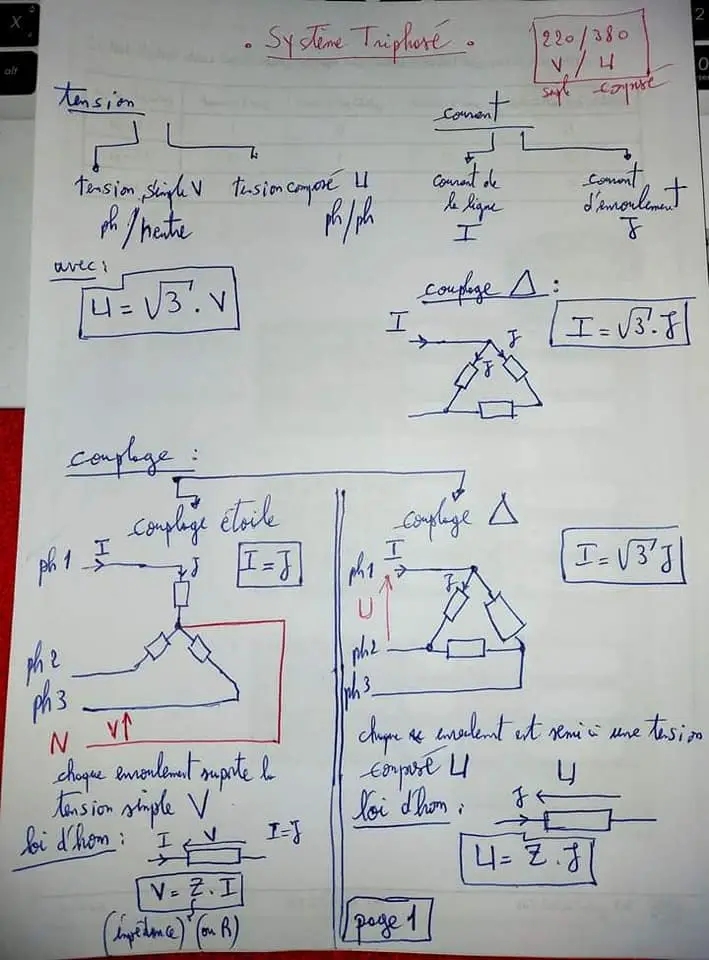 X
alt
2
0
. Système Triphasé .
220/380
V / U
simple composé
tension
courant
tension simple V
ph/neutre
tension composé U
ph/ph
courant de
la ligne
I
courant
d'enroulement
J
avec:
U = √3 . V
couplage Δ :
I = √3 . J
I
J
J
couplage :
couplage étoile
ph 1
I
J
I = J
ph 2
ph 3
N
V
chaque enroulement suporte la
tension simple V
loi d'hom :
I
V
I=J
V = Z . I
(impédance) (ou R)
couplage Δ
ph1
I
J
I = √3 J
U
ph2
ph3
chaque enroulemt est semi à une tension
composé U
loi d'hom :
J
U
U = Z . J
page 1